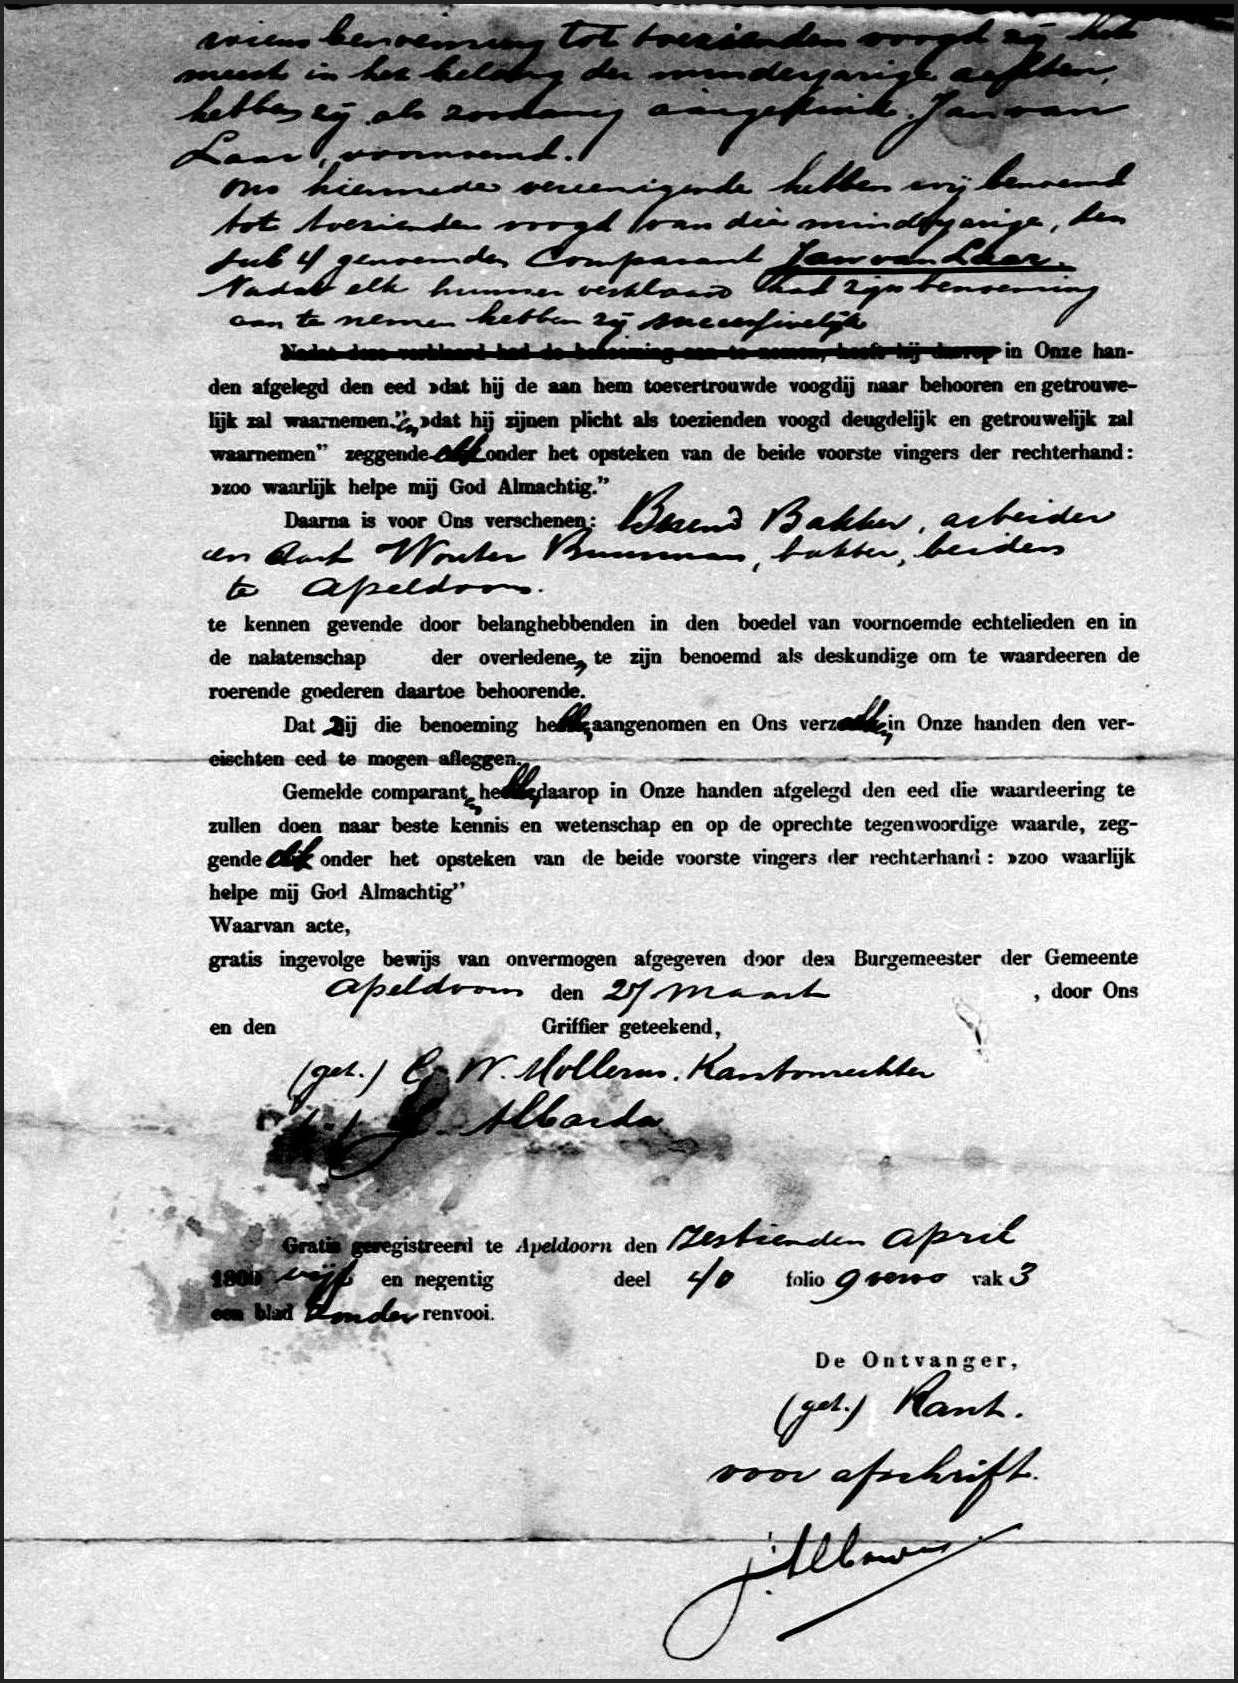 wiens benoeming tot toezienden voogd zij het
meest in het belang der minderjarige achten,
hebben zij als zoodanig aangeduid Jan van
Laar, voornoemd.
Ons hiermede vereenigende hebben wij benoemd
tot toezienden voogd van die minderjarige, den
sub 4 genoemden Comparant Jan van Laar.
Nadat elk hunner verklaard had zijn benoeming
aan te nemen hebben zij successivelijk
Nadat deze verklaard had de benoeming aan te nemen, heeft hij daarop in Onze han-
den afgelegd den eed »dat hij de aan hem toevertrouwde voogdij naar behooren en getrouwe-
lijk zal waarnemen." en »dat hij zijnen plicht als toezienden voogd deugdelijk en getrouwelijk zal
waarnemen" zeggende elk onder het opsteken van de beide voorste vingers der rechterhand:
»zoo waarlijk helpe mij God Almachtig."
Daarna is voor Ons verschenen: Berend Bakker, arbeider
en Aart Wouter Buurman, bakker, beiden
te Apeldoorn.
te kennen gevende door belanghebbenden in den boedel van voornoemde echtelieden en in
de nalatenschap der overledene, te zijn benoemd als deskundige om te waardeeren de
roerende goederen daartoe behoorende.
Dat zij die benoeming hebben aangenomen en Ons verzoeken in Onze handen den ver-
eischten eed te mogen afleggen.
Gemelde comparanten hebben daarop in Onze handen afgelegd den eed die waardeering te
zullen doen naar beste kennis en wetenschap en op de oprechte tegenwoordige waarde, zeg-
gende elk onder het opsteken van de beide voorste vingers der rechterhand: »zoo waarlijk
helpe mij God Almachtig"
Waarvan acte,
gratis ingevolge bewijs van onvermogen afgegeven door den Burgemeester der Gemeente
Apeldoorn den 27 Maart , door Ons
en den Griffier geteekend,
(get.) C. W. Mollerus. Kantonrechter
J. Albarda
Gratis geregistreerd te Apeldoorn den zestienden April
1800 vijf en negentig deel 40 folio 9 verso vak 3
een blad zonder renvooi.
De Ontvanger,
(get.) Kant.
voor afschrift.
J. Albarda